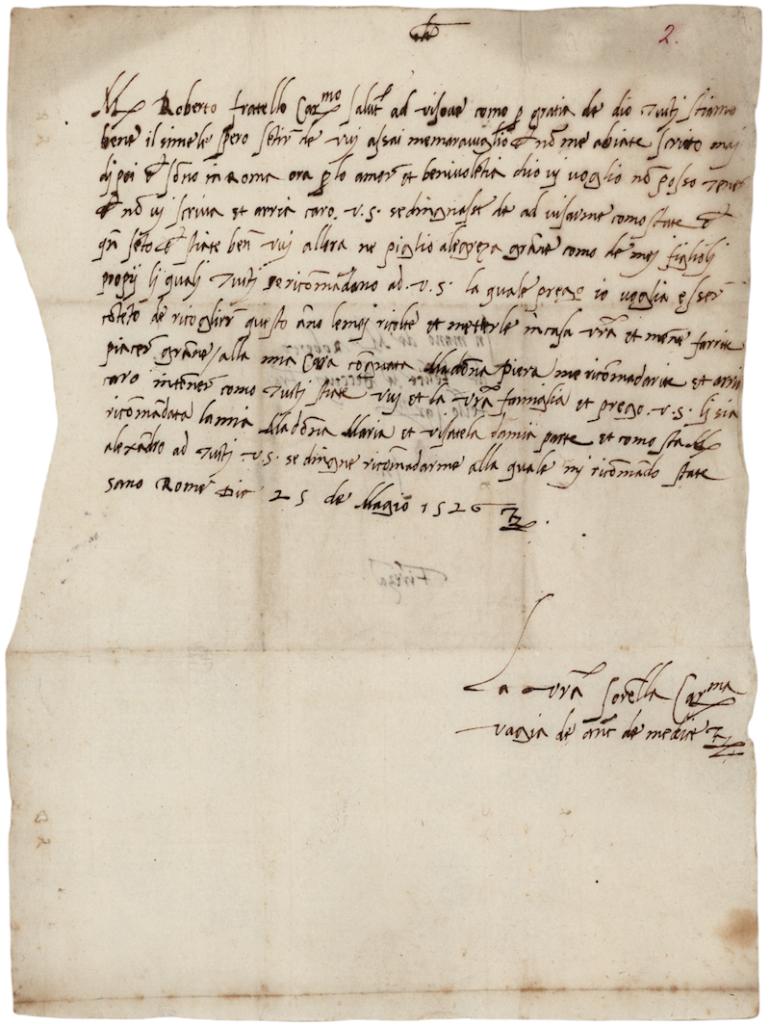 2.
M Roberto fratello Car.mo salut ad visove como p gratia de dio tutti stiamo
bene il simele spero setir de vuj assai memaraviglio nō me abiate scritto maj
dj poi sōno in Roma ora p lo amor et benivoletia dio vj voglio nō posso tener
nō vj scriva et arria caro v.s. se dingnasse de ad visarme como state
state ben vuj allora ne piglio alegreza grāne como de mej figliolj
propij lj qualj tuttj se ricomādano ad v.s. la quale prego io voglia esser
cōtēto de ricoglier questo āno le mej ricolte et metterle in casa vrā et mene farrite
piacer grāne / alla mia Cara cōgnata Madōna piera me ricomādarite et arria
caro intēner como tuttj state vuj et la vrā famiglia et prego v.s. lj sia
ricomādata la mia Madōna Maria et visatela da mia parte et como sta M
alexādro ad tuttj v.s. se dingne ricomādarme alla quale mj ricomādo state
sano Rome Die 25 de Magio 1526
La vrā sorella Car.ma
vagia de de medici